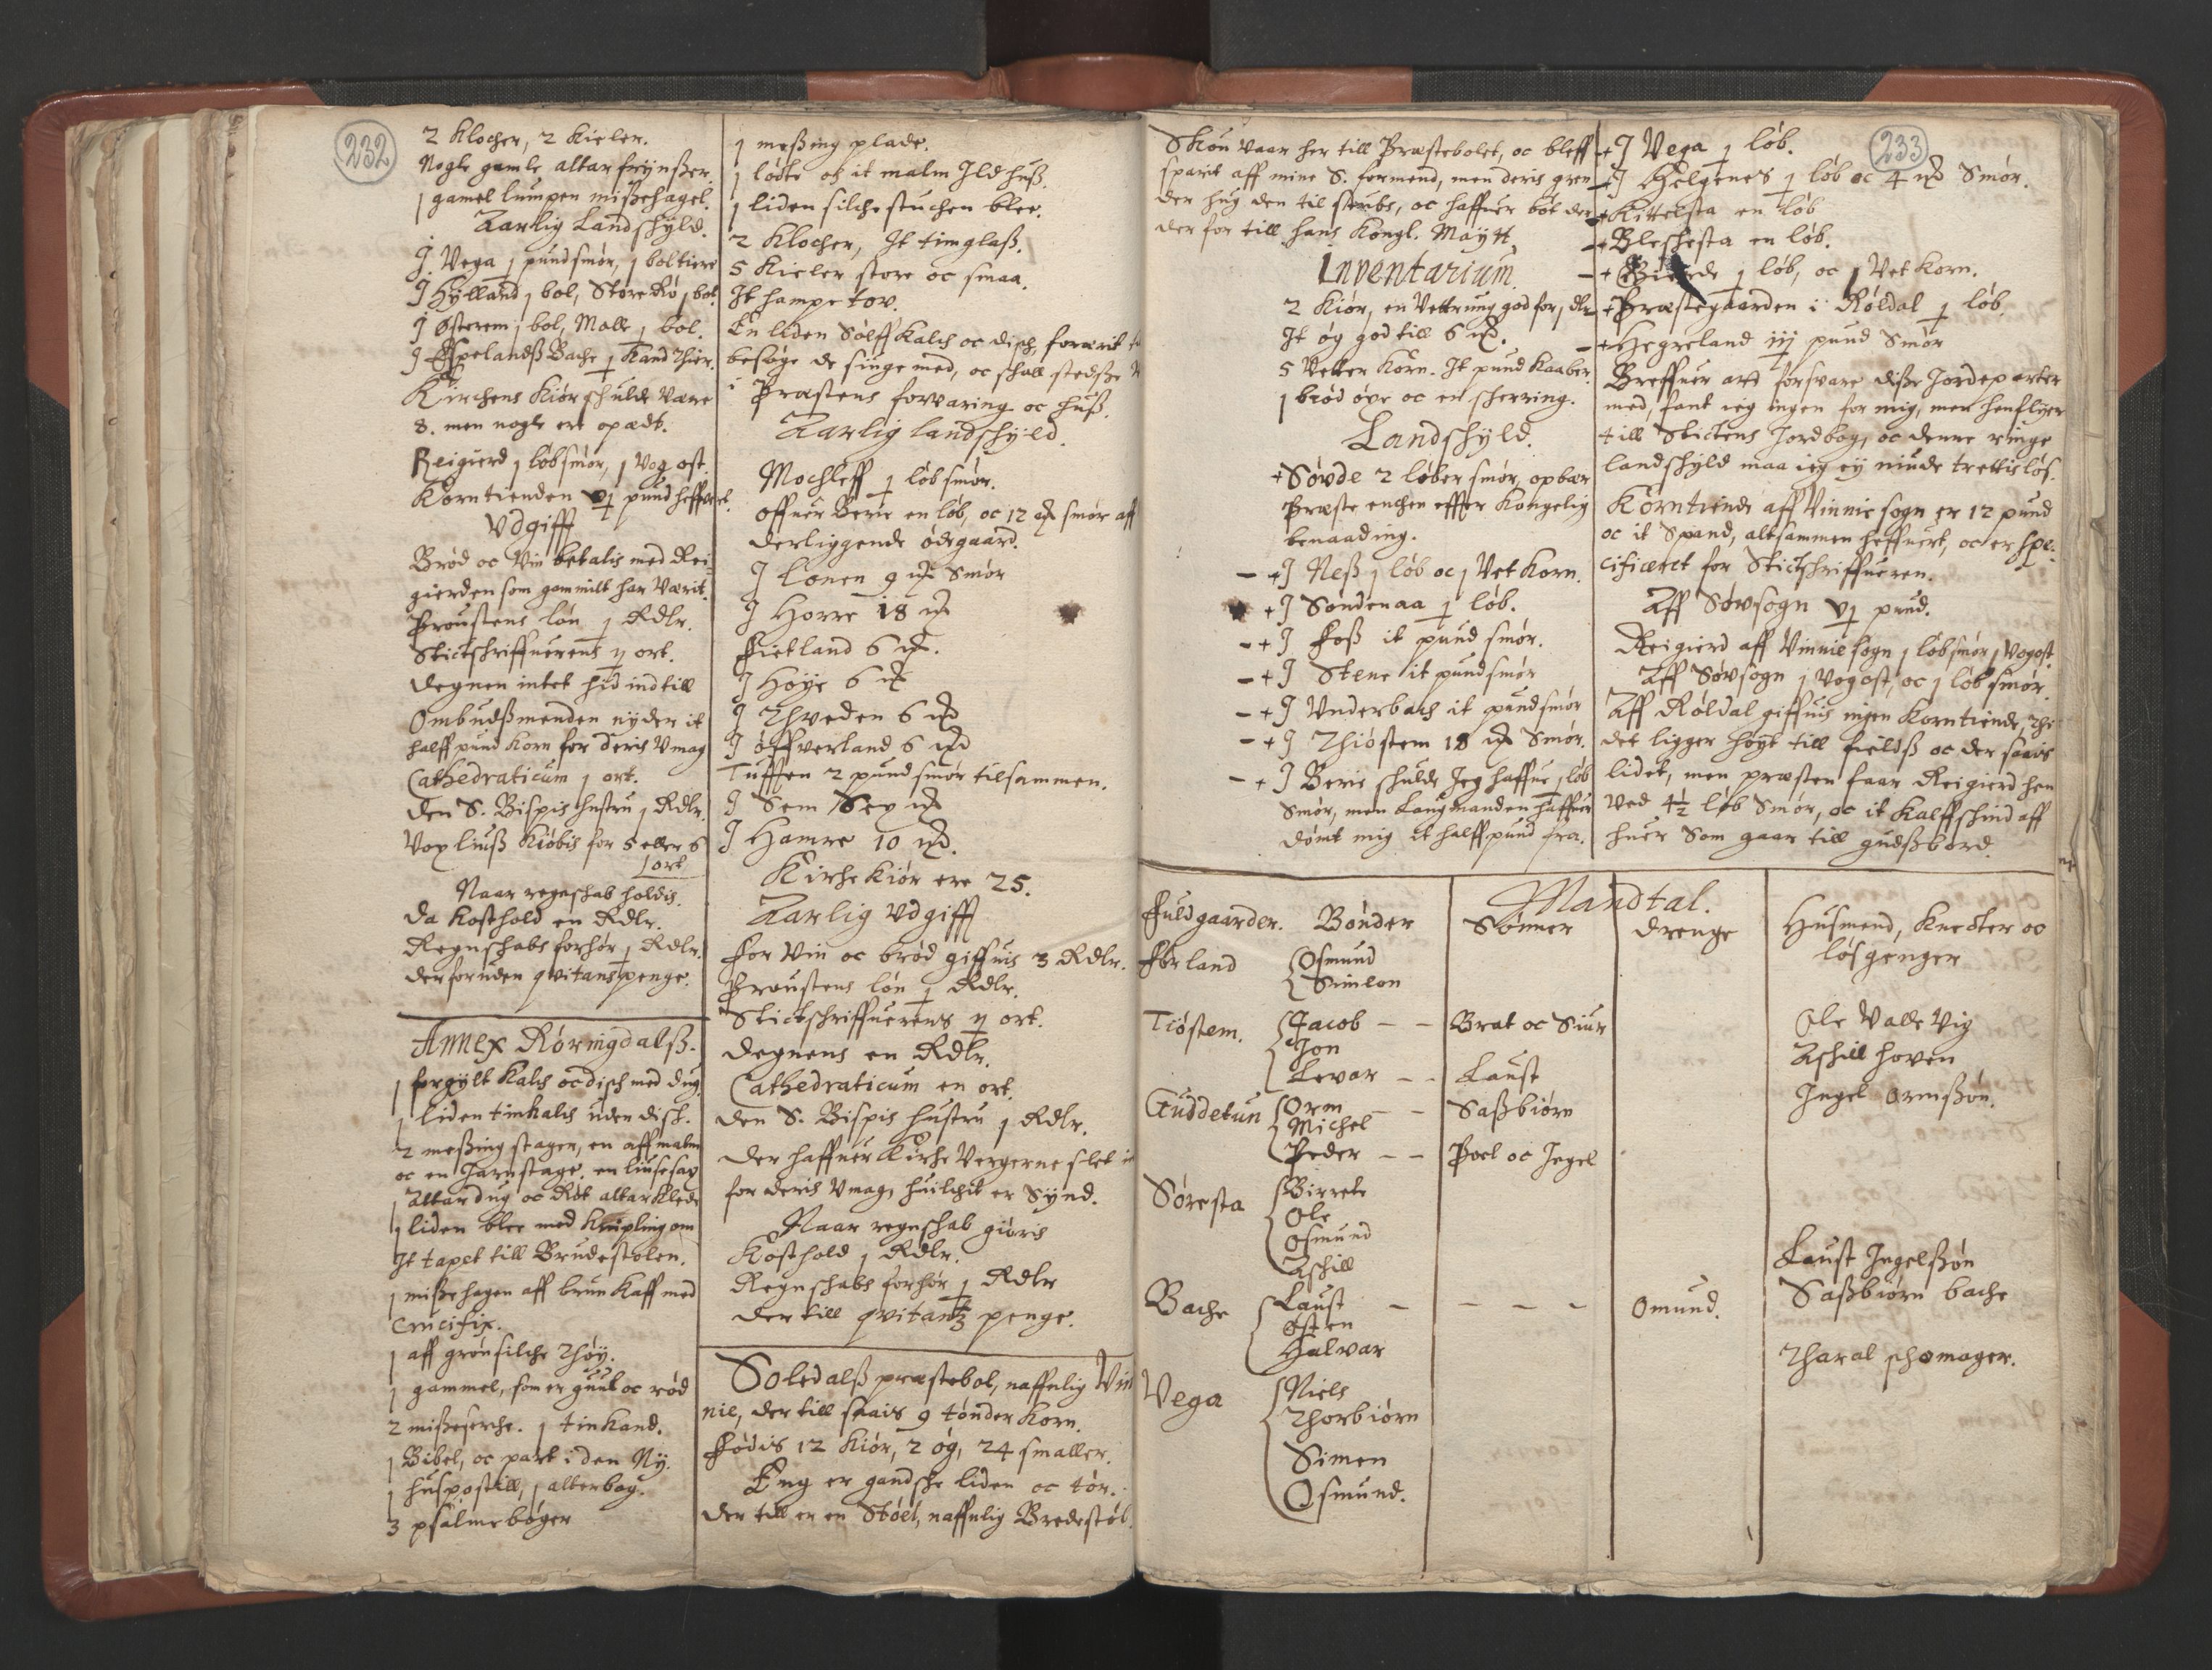 232
2 Klocher, 2 Kieler.
Nogle gamle altar frynßer.
1 gamel lumpen mißehagel.
Aarlig Landschyld.
J Vega 1 pund smør, 1 boltiere
J Hylland 1 bol, Store Rø 1 bol
J Østerem 1 bol, Malle 1 bol.
J Espelandß Bache 1 Kand Thier.
Kirchens Kiør schulde være
8. men nogle ere opædt.
Reigierd 1 løb smør, 1 Vog ost.
Korntienden vj pund heffvert.
Vdgifft
Brød oc Vin betalis med Rei-
gierden som gammilt har Værit.
Proustens løn 1 Rdlr.
Stictschriffuerens ij ort.
Degnen intet hid indtill
Ombudßmenden nyder it
halff pund Korn for deris Vmag
Cathedraticum 1 ort.
Den S. Bispis hustru 1 Rdlr.
Vox liuß Kiøbis for 5 eller 6
ort
Naar regnschab holdis.
Da Kosthold en Rdlr.
Regnschabs forhør 1 Rdlr.
der foruden qvitans penge.
Annex Røringdalß.
1 forgylt Kalch oc disch med dug
1 liden tinkalch uden disch.
2 meßing stager, en aff malm
oc en Jarnstage. en liusesax
1 Altardug oc Røt altar Klede
1 liden blee med Knipling om
It tapet till Brudestolen.
1 mißehagen aff brun Kaff med
Crucifix.
1 aff grøn silche Thøy.
1 gammel, som er guul oc rød
2 mißeserche. 1 tinkand.
1 Bibel, oc part i den Ny.
1 huspostill, 1 alterbog.
3 psalme bøger
1 meßing plade.
1 lødte oc it malm Ildhuß.
1 liden silchestuchen blee.
2 Klocher, It timglaß.
5 Kieler store oc smaa.
It hampe tov.
En liden Sølff Kalch oc disch, forærit
besøge de siuge med, oc schall stedße
i Præstens forvaring oc huß.
Aarlig landschyld.
Mochleff 1 løb smør.
Offuer Berie en løb, oc 12 mrk smør aff
derliggende ødegaard.
J Lonen 9 mrk Smør
J Horre 18 mrk
Fietland 6 mrk.
J Høye 6 mrk
J Thveden 6 mrk
J Øffverland 6 mrk
Tufften 2 pund smør tilsammen.
J Sem Sex mrk
J Hamre 10 mrk.
Kirche Kiør ere 25.
Aarlig Vdgifft
For Vin oc brød giffuis 3 Rdlr.
Proustens løn 1 Rdlr.
Stictschriffuerens ij ort.
Degnens en Rdlr.
Cathedraticum en ort.
Den S. Bispis hustru 1 Rdlr.
Der haffuer Kirche Vergerne slet
for deris Vmag, huilchit er Synd.
Naar regnschab giøris
Kosthold 1 Rdlr.
Regnschabs forhør 1 Rdlr
der till qvitantz penge.
Soledalß præstebol, naffnlig Vin
nie, der till saais 9 tønder Korn.
Fødis 12 Kiør, 2 øg, 24 smaller.
Eng er gandsche liden oc tør.
Der till er en Støel, naffnlig Bredestøl.
233
Skou vaar her till Præstebolet, oc bleff
sparit aff mine S. formend, men deris gren
der hug den til stubs, oc haffuer bøt der
der for till hans Kongl. Maytt
Inventarium.
2 Kiør, en Vettrung god for 1 dlr
It øg god till 6 mrk.
5 Vetter Korn. It pund Kaaber.
1 brød øxe oc en scherring.
Landschyld.
+ Søvde 2 løber smør, opbær
Præste enchen effter Kongelig
benaading.
- + J Neß 1 løb oc 1 Vet Korn.
+ J Sondenaa 1 løb.
- + J Foß it pund smør.
- + J Stene it pund smør
- + J Vnderbach it pund smør
- + J Thiøstem 18 mrk Smør.
- + J Berie schulde Jeg haffue 1 løb
Smør, men Laugmanden haffuer
dømt mig it halff pund fra.
+ J Vega 1 løb.
+ J Helgenes 1 løb oc 4 mrk Smør.
+ Kittelsta en løb
+ Bleschesta en løb.
- + 1 løb, oc 1 Vet Korn.
+ Præstegaarden i Røldal 1 løb.
- + Hegreland iij pund Smør
Breffuer att forsvare diße Jordeparter
med, fant ieg ingen for mig, men henflyer
till Stictens Jordbog, oc denne ringe
landschyld maa ieg ey niude trettisløs.
Korntiende aff Vinnie sogn er 12 pund
oc it Spand, altsammen heffuert, oc er spe-
cificeret for Stictschriffueren.
Aff Søvsogn vj pund.
Reigierd aff Vinnie sogn 1 løb smør 1 Vogost
Aff Søvsogn 1 Vog ost, oc 1 løb smør.
Aff Røldal giffuis ingen Korntiende, thi
det ligger høyt till fieldß oc der saaes
lidet, men præsten faar Reigierd hen
ved 4½ løb Smør, oc it Kalffschind aff
huer Som gaar till gudßbord.
Mandtal.
Fuldgaarder. Bønder Sønner Drenge Husmend, Knecter oc
løsgenger
Førland Osmund
Simeon
Tiøstem. Jacob - - Brat oc Siur Ole Valle Vig
Jon Aschill hoven
Levar - - Laust Ingel Ormßøn.
Guddetun Orm - - Saßbiørn
Michel
Peder - - Poel oc Ingel
Søresta Birrete
Ole
Osmund Laust Ingelßøn
Aschill
Bache Laust - - - - Omund. Saßbiørn bache
Østen
Halvar Tharal schomager.
Vega Niels
Thorbiørn
Simen
Osmund.